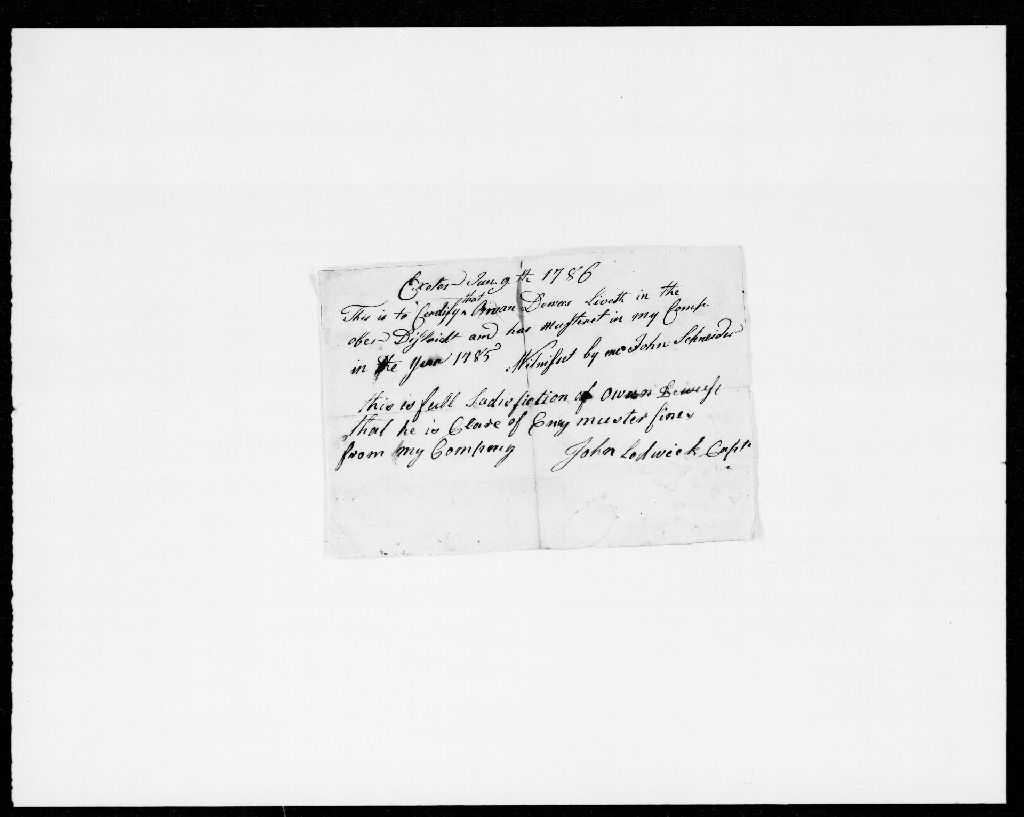 Exeter Jan 9th 1786
This is to Certify that Owan Dewas Liveth in the
ober District and has mustrst in my Comp
in the Year 1785 Witnisst by me John Schneider
this is full Sadisfiction of Owen Dewees
that he is Cleare of Eny muster fines
from my Company John Lodwick Capt